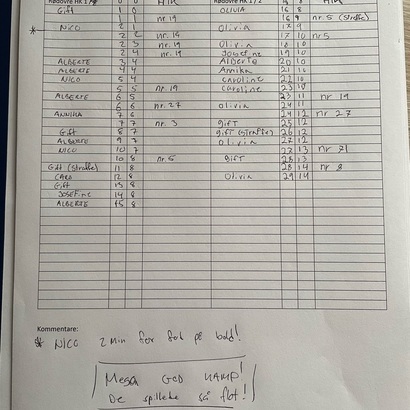 Rødovre HK 1 0 0 HIK Rødovre HK 1/2 16 8 HIK
Gift 1 0 OLIVIA 16 8
1 1 nr. 19 16 9 nr. 5 (Straffe)
* NICO 2 1 Olivia 17 9
2 2 nr. 19 17 10 nr 5
2 3 nr. 19 Olivia 18 10
2 4 nr. 19 Josefine 19 10
ALBERTE 3 4 Alberte 20 10
ALBERTE 4 4 Annika 21 10
NICO 5 4 Caroline 22 10
5 5 nr. 19 Caroline 23 10
ALBERTE 6 5 23 11 nr 19
6 6 nr. 27 olivia 24 11
ANNIKA 7 6 24 12 nr 27
7 7 nr. 3 gift 25 12
Gift 8 7 gift (straffe) 26 12
ALBERTE 9 7 Olivia 27 12
NICO 10 7 27 13 nr 71
10 8 nr. 5 Gift 28 13
Gift (straffe) 11 8 28 14 nr 8
CARO 12 8 Olivia 29 14
Gift 13 8
JOSEFINE 14 8
ALBERTE 15 8
Kommentare:
* NICO 2 min for fod på bold!
MEGA GOD KAMP!
De spillede så flot!